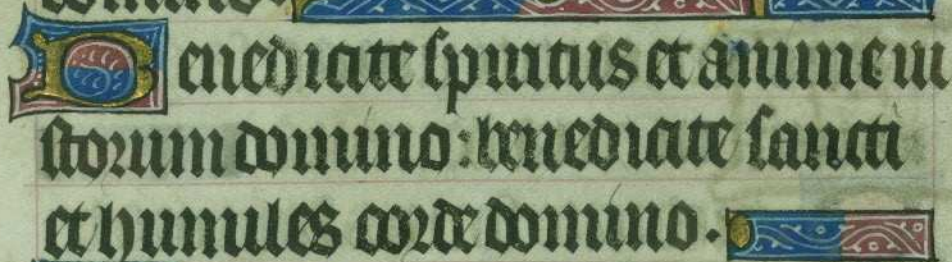 Benedicite spiritus et anime iu
storum domino: benedicite sancti
et humiles corde domino.